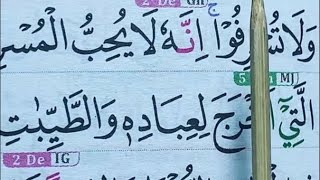 2 De GH ج
وَلَا تُسْرِفُوْا اِنَّهٗ لَا يُحِبُّ الْمُسْرِ
MJ 5
الَّتِيْٓ اَخْرَجَ لِعِبَادِهٖ وَالطَّيِّبٰتِ
2 De IG